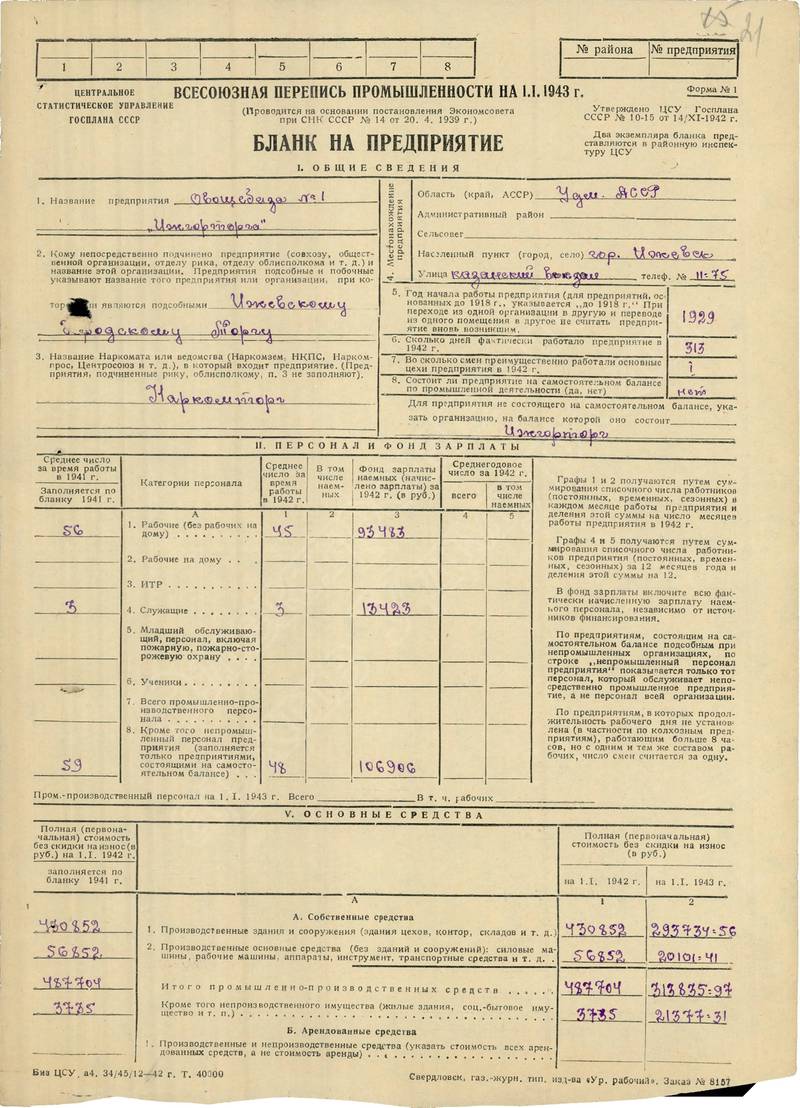 21
1 2 3 4 5 6 7 8
№ района № предприятия
ЦЕНТРАЛЬНОЕ
СТАТИСТИЧЕСКОЕ УПРАВЛЕНИЕ
ГОСПЛАНА СССР
ВСЕСОЮЗНАЯ ПЕРЕПИСЬ ПРОМЫШЛЕННОСТИ НА 1.I.1943 г.
(Проводится на основании постановления Экономсовета
при СНК СССР № 14 от 20. 4. 1939 г.)
БЛАНК НА ПРЕДПРИЯТИЕ
Форма № 1
Утверждено ЦСУ Госплана
СССР № 10-15 от 14/XI-1942 г.
Два экземпляра бланка пред-
ставляются в районную инспек-
туру ЦСУ
I. ОБЩИЕ СВЕДЕНИЯ
1. Название предприятия Овощебаза №1
"Ижгорторга"
2. Кому непосредственно подчинено предприятие (совхозу, общест-
венной организации, отделу рика, отделу облисполкома и т. д.) и
название этой организации. Предприятия подсобные и побочные
указывают название того предприятия или организации, при ко-
тор являются подсобными Ижевскому
Городскому Торгу
3. Название Наркомата или ведомства (Наркомзем, НКПС, Нарком-
прос, Центросоюз и т. д.), в который входит предприятие. (Пред-
приятия, подчиненные рику, облисполкому, п. 3 не заполняют).
Наркомторг
4. Местонахождение
предприятия
Область (край, АССР) Удм. АССР
Административный район
Сельсовет
Населенный пункт (город, село) гор. Ижевск
Улица казанский вокзал телеф. № 11-75
5. Год начала работы предприятия (для предприятий, ос-
нованных до 1918 г., указывается „до 1918 г." При
переходе из одной организации в другую и переводе
из одного помещения в другое не считать предпри-
ятие вновь возникшим. 1929
6. Сколько дней фактически работало предприятие в
1942 г. 313
7. Во сколько смен преимущественно работали основные
цехи предприятия в 1942 г. 1
8. Состоит ли предприятие на самостоятельном балансе
по промышленной деятельности (да, нет) нет
Для предприятия не состоящего на самостоятельном балансе, ука-
зать организацию, на балансе которой оно состоит
Ижгорторг
II. ПЕРСОНАЛ И ФОНД ЗАРПЛАТЫ
Среднее число
за время работы
в 1941 г.
Заполняется по
бланку 1941 г.
Категории персонала
Среднее
число за
время
работы
в 1942 г.
В том
числе
наем-
ных
Фонд зарплаты
наемных (начис-
лено зарплаты) за
1942 г. (в руб.)
Среднегодовое
число за 1942 г.
всего
в том
числе
наемных
А 1 2 3 4 5
56 1. Рабочие (без рабочих на
дому) 45 93483
2. Рабочие на дому
3. ИТР
3 4. Служащие 3 13423
5. Младший обслуживаю-
щий, персонал, включая
пожарную, пожарно-сто-
рожевую охрану
6. Ученики
7. Всего промышленно-про-
изводственного персо-
нала
8. Кроме того непромыш-
ленный персонал пред-
приятия (заполняется
только предприятиями,
состоящими на самосто-
ятельном балансе)
59 48 106906
Графы 1 и 2 получаются путем сум-
мирования списочного числа работников
(постоянных, временных, сезонных) в
каждом месяце работы предприятия и
деления этой суммы на число месяцев
работы предприятия в 1942 г.
Графы 4 и 5 получаются путем сум-
мирования списочного числа работни-
ков предприятия (постоянных, времен-
ных, сезонных) за 12 месяцев года и
деления этой суммы на 12.
В фонд зарплаты включите всю фак-
тически начисленную зарплату наем-
ного персонала, независимо от источ-
ников финансирования.
По предприятиям, состоящим на са-
мостоятельном балансе подсобным при
непромышленных организациях, по
строке „непромышленный персонал
предприятия" показывается только тот
персонал, который обслуживает непо-
средственно промышленное предприя-
тие, а не персонал всей организации.
По предприятиям, в которых продол-
жительность рабочего дня не установ-
лена (в частности по колхозным пред-
приятиям), работающим больше 8 ча-
сов, но с одним и тем же составом ра-
бочих, число смен считается за одну.
Пром.-производственный персонал на 1. I. 1943 г. Всего В т. ч. рабочих
V. ОСНОВНЫЕ СРЕДСТВА
Полная (первона-
чальная) стоимость
без скидки на износ (в
руб.) на 1.I. 1942 г.
заполняется по
бланку 1941 г.
Полная (первоначальная)
стоимость без скидки на износ
(в руб.)
на 1.I. 1942 г. на 1.I. 1943 г.
А 1 2
А. Собственные средства
430852 1. Производственные здания и сооружения (здания цехов, контор, складов и т. д.) 430852 293734-56
56852 2. Производственные основные средства (без зданий и сооружений): силовые ма-
шины, рабочие машины, аппараты, инструмент, транспортные средства и т. д. 56852 20101-41
487704 Итого промышленно-производственных средств 487704 313835-97
3735 Кроме того непроизводственного имущества (жилые здания, соц.-бытовое иму-
щество и т. п.) 3735 21377-31
Б. Арендованные средства
1. Производственные и непроизводственные средства (указать стоимость всех арен-
дованных средств, а не стоимость аренды)
Биз ЦСУ, а4. 34/45/12—42 г. Т. 40000
Свердловск, газ.-журн. тип. изд-ва «Ур. рабочий». Заказ № 8157